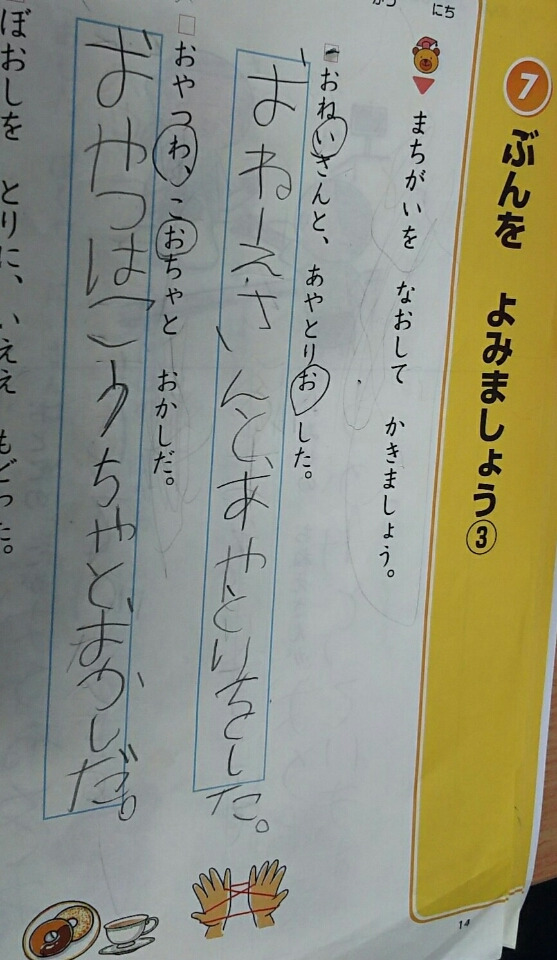 ⑦ ぶんを よみましょう③
にち
まちがいを なおして かきましょう。
おねいさんと、あやとりおした。
おねーえさんと、あやとりをした。
おやつわ、こおちゃと おかしだ。
おやつはこうちゃと、おかしだ。
ぼおしを とりに、いええ もどった。
14